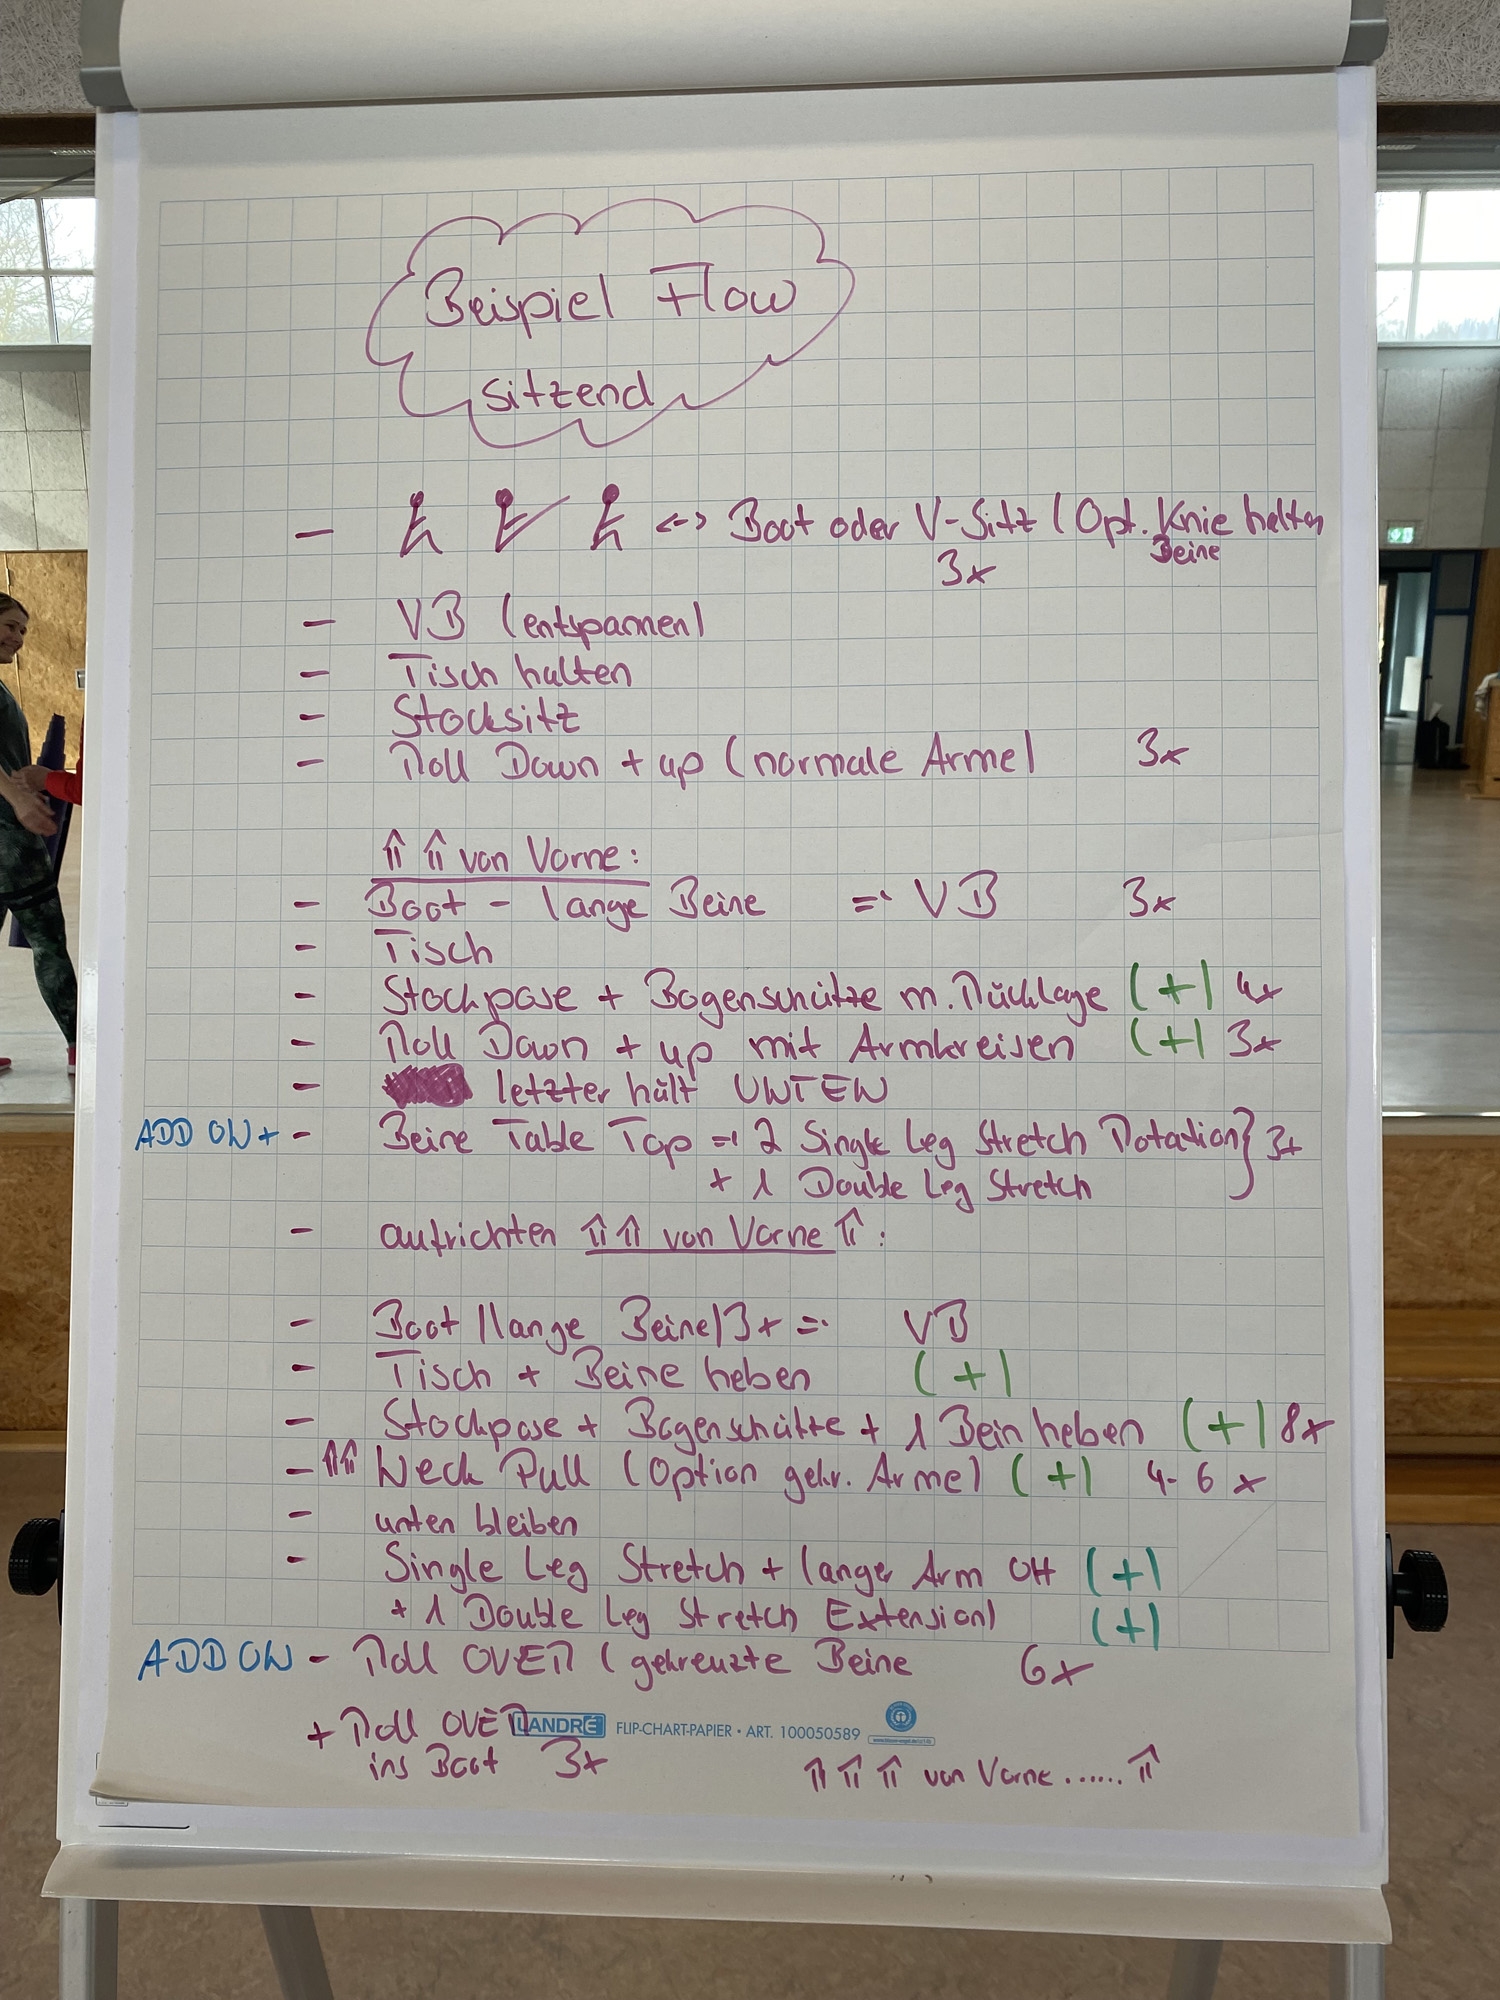 Beispiel Flow
sitzend
- <-> Boot oder V-Sitz (Opt. Knie halten
Beine
3x
- VB (entspannen)
- Tisch halten
- Stocksitz
- Roll Down + up (normale Arme) 3x
⇑ ⇑ von Vorne:
- Boot - lange Beine => VB 3x
- Tisch
- Stockpose + Bogenschütze m. Rücklage (+) 4x
- Roll Down + up mit Armkreisen (+) 3x
- letzter hält UNTEN
ADD ON + - Beine Table Top => 2 Single Leg Stretch Rotation } 3x
+ 1 Double Leg Stretch
- aufrichten ⇑ ⇑ von Vorne ⇑ :
- Boot (lange Beine) 3x => VB
- Tisch + Beine heben (+)
- Stockpose + Bogenschütze + 1 Bein heben (+) 8x
- ⇑⇑ Neck Pull (Option gekr. Arme) (+) 4-6 x
- unten bleiben
- Single Leg Stretch + langer Arm OH (+)
+ 1 Double Leg Stretch Extension) (+)
ADD ON - Roll OVER (gekreuzte Beine 6x
+ Roll OVER
LANDRÉ FLIP-CHART-PAPIER • ART. 100050589
ins Boot 3x
⇑ ⇑ ⇑ von Vorne ...... ⇑